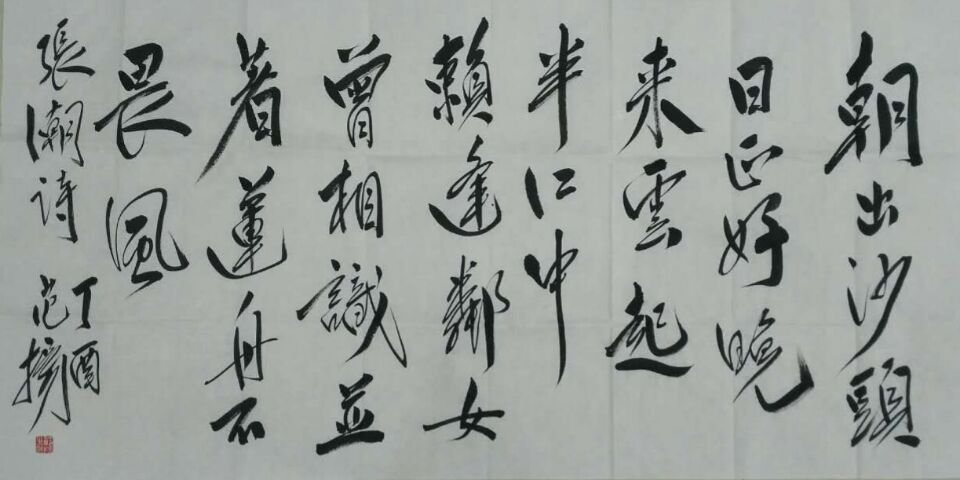 朝出沙頭
日正好晚
来雲起
半江中
賴逢鄰女
曾相識並
著蓮舟不
畏風
張潮诗
丁酉
范